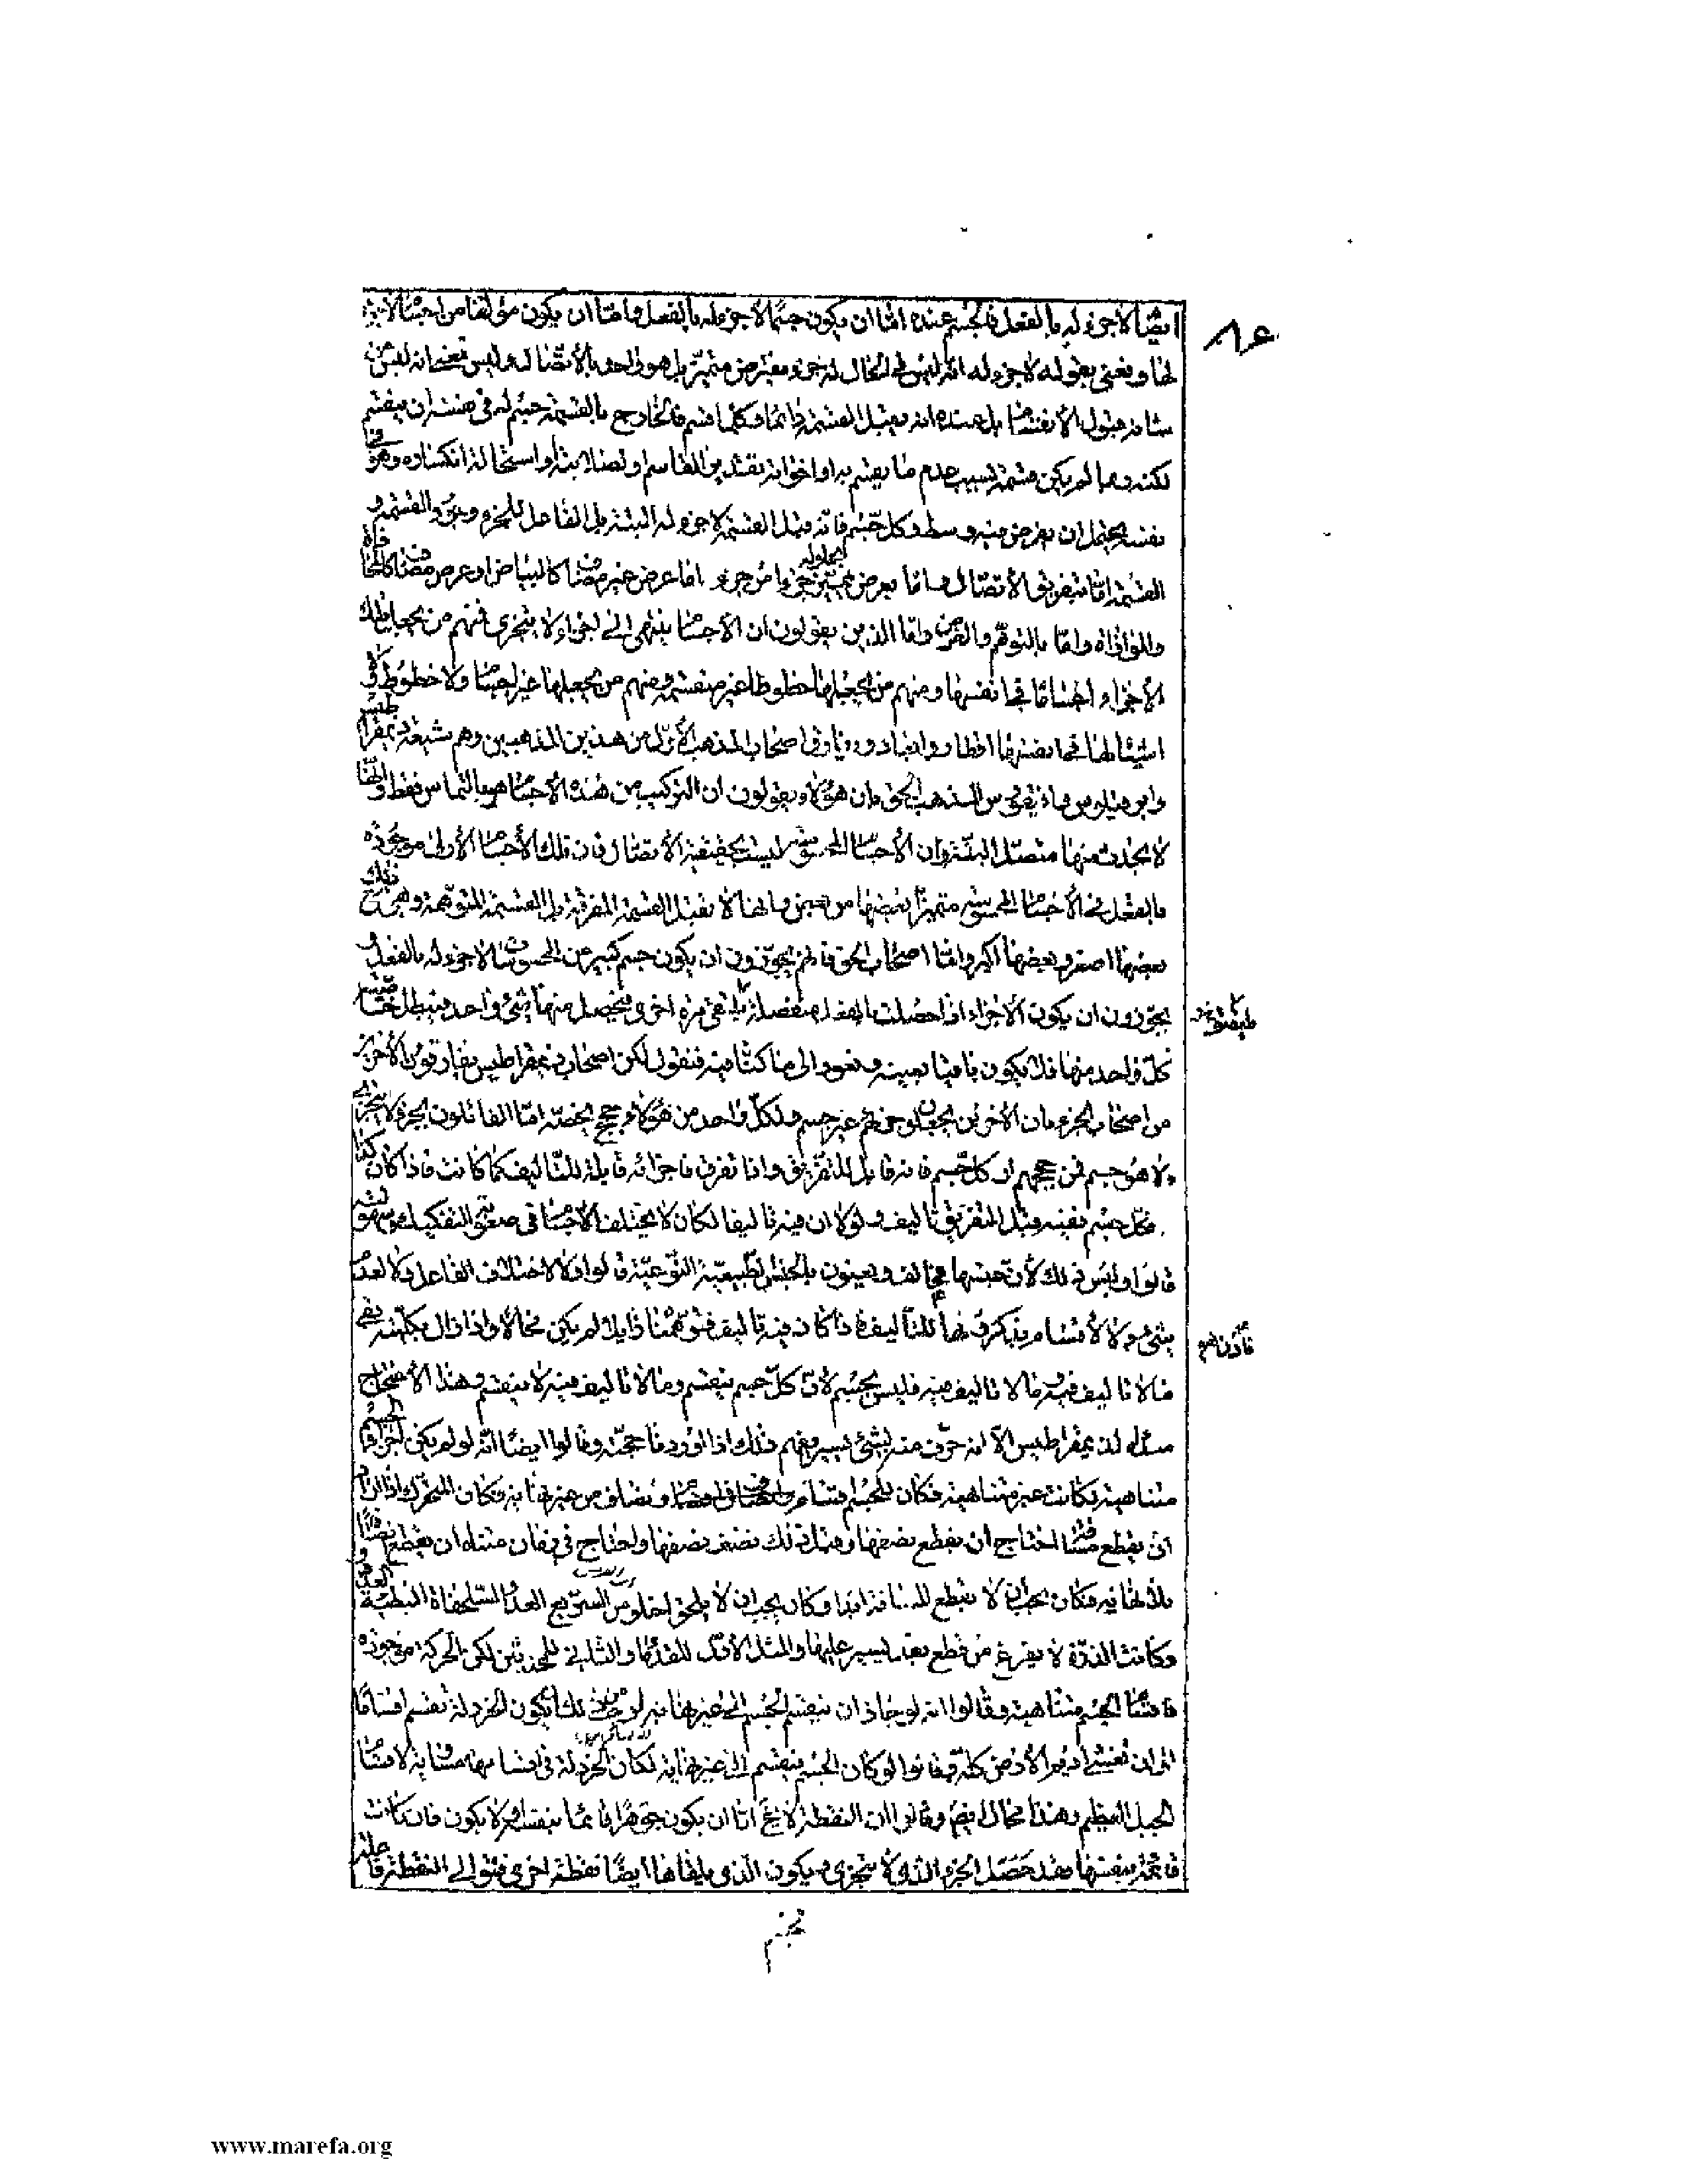 ايضا لا جزء له بالفعل فالجسم عنده اما ان يكون جسما لا جزء له بالفعل واما ان يكون مؤلفا من اجسام لا جزء
لها ونعنى بقوله لا جزء له انه ليس فى الحال له جزء مفترض متميز بل هو واحد بالاتصال وليس نعنى انه ليس من
شانه قبول الانقسام بل عنده انه يقبل القسمة دائما وكلما قسم فالخارج بالقسمة جسم له فى نفسه ان ينقسم
لكنه ربما لم يكن قسمته بسبب عدم ما يقسم به او فواته تقدير القاسم او لصلابته او استحالة انكساره وهو فى
نفسه يحتمل ان يفرض فيه وسط وكل جسم فانه قبل القسمة لا جزء له البتة بل الفاعل للجزء وجود القسمة و
القسمة اما بتفريق الاتصال واما بعرض مميز بحلوله جزءا من جزء اما عرض غير مضاف كالبياض او عرض مضاف كالمحاذاة
والموافاة واما بالتوهم والفرض واما الذين يقولون ان الاجسام ينتهى الى اجزاء لا يتجزى فمنهم من يجعل تلك
الاجزاء اجساما فى انفسها ومنهم من يجعلها خطوطا غير منقسمة ومنهم من يجعلها غير اجسام ولا خطوط ولا
اشياء لها فى انفسها اقطار وابعاد ويفارق اصحاب المذهب الاول من هذين المذهبين وهم شيعة ديمقراطيس
وابن قيلوس وابيقورس المذهب الحق بان هؤلاء يقولون ان التركيب من هذه الاجسام هو بالتماس فقط وانها
لا يحدث منها متصل البتة وان الاجسام المحسوسة ليست بحقيقية الاتصال فان تلك الاجسام الاولى موجودة
بالفعل فى الاجسام المحسوسة متميزا بعضها من بعض وانها لا تقبل القسمة المفرقة بل القسمة المتوهمة وهى مع ذلك
بعضها اصغر وبعضها اكبر واما اصحاب الحق فانهم يجوزون ان يكون جسم كبير من المحسوسات لا جزء له بالفعل و
يجوزون ان يكون الاجزاء اذا حصلت بالفعل منفصلة تلتقى مرة اخرى فيحصل منها شئ واحد فيبطل خاصية
كل واحد منها فلا يكون ثابتا بعينه ونعود الى ما كنا فيه فنقول لكن اصحاب ديمقراطيس يفارقون الاخرين
من اصحاب الجزء بان الاخرين يجعلون جزئهم غير جسم ولكل واحد من هؤلاء حجج تخصه اما القائلون بجزء لا يتجزى
ولا هو جسم فمن حججهم ان كل جسم فانه قابل للتفريق واذا تفرق فاجزائه قابلة للتاليف كما كانت فاذا كان كذا
فكل جسم ففيه قبل التفريق تاليف ولولا ان فيه تاليفا لكان لا يختلف الاجسام فى صعوبة التفكيك وسهولته
قالوا وليس ذلك لان جنسها مخالف ويعنون بالجنس الطبيعية النوعية قالوا ولا لاختلاف الفاعل ولا لعدم
شئ ولا لاقسام يذكرونها للتاليف فاذا كان فيه تاليف فتوهمنا زايلا لم يكن محالا واذا زال بكليته بقى
ما لا تاليف فيه وما لا تاليف فيه فليس بجسم لان كل جسم ينقسم وما لا تاليف فيه لا ينقسم وهذا الاحتجاج
مثله لديمقراطيس الا انه حرف منه لشئ يسير ويفهم ذلك اذا اورد ما حجته وقالوا ايضا انه لو لم يكن اجزاء الجسم
متناهية لكانت غير متناهية فكان للجسم اقسام وانصاف فى انصاف من غير نهاية وكان المتحرك اذا اراد
ان يقطع مسافة احتاج ان يقطع نصفها وقبل ذلك نصف نصفها واحتاج فى زمان متناه ان يقطع انصافا
بلا نهاية فكان يجب ان لا يقطع المسافة ابدا وكان يجب ان لا يلحق اخلوس السريع العدو السلحفاة البطيئة العدو
وكانت الذرة لا يفرغ من قطع بعد يسير عليها والمثل الاول للقدماء والثانى للمحدثين لكن الحركة موجودة
فاقسام الجسم متناهية وقالوا انه لو جاز ان ينقسم الجسم الى غير نهاية لوجب من ذلك ان يكون الخردلة تقسم اقساما
الى ان تغشى اديم الارض كله وقالوا لو كان الجسم ينقسم الى غير نهاية لكان الخردلة فى اقسامها مساوية لاقسام
الجبل العظيم وهذا محال ايضا وقالوا ان النقطة لا يخ اما ان يكون جوهرا قائما بنفسه او لا يكون فان كانت
قائمة بنفسها فقد حصل الجزء الذى لا يتجزى ويكون الذى يلقاها ايضا نقطة اخرى فتوالى النقط فاعلة
www.marefa.org